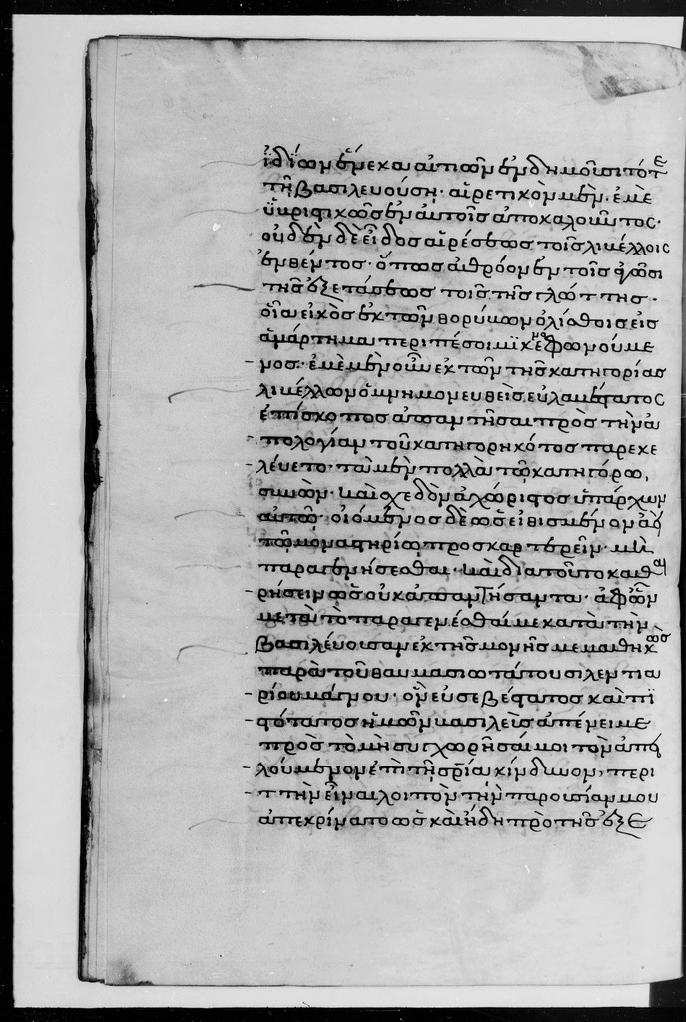 ἰδίων ἕνεκα αἰτιῶν ἐνδημοῦσι τότε
τῇ βασιλευούσῃ· αἱρετικὸν μὲν ἐμὲ
ὑβριστικῶς ἐν αὐτοῖς ἀποκαλοῦντος·
οὐδὲν δὲ εἶδος αἱρέσεως τοῖς λιβέλλοις
ἐνθέντος· ὅπως ἀθρόον ἐν τοῖς
τῆς ἐξετάσεως τοῖς τῆς γλώττης·
οἷα εἰκὸς ἐκ τῶν θορύβων ὀλίσθοις εἰς
ἁμάρτημα περιπέσοιμι φωνούμε
νος· ἐμὲ μὲν οὖν ἐκ τῶν τῆς κατηγορίας
λιβέλλων ὁ μνημονευθεὶς εὐλαβέστατος
ἐπίσκοπος ἀπαντῆσαι πρὸς τὴν ἀ
πολογίαν τοῦ κατηγορηκότος παρεκε
λεύετο· τὰ μὲν πολλὰ τῷ κατηγόρῳ
συνὼν· καὶ σχεδὸν ἀχώριστος ὑπάρχων
αὐτῷ· οἰόμενος δὲ ὡς εἰθισμένον
τῷ μοναστηρίῳ προσκαρτερεῖν· μὴ
παραγενήσεσθαι· καὶ διὰ τοῦτο καθαι
ρήσειν ὡς οὐκ ἀπαντήσαντα· ἀφ' ὧν
μετὰ τὸ παραγενέσθαι με κατὰ τὴν
βασιλεύουσαν ἐκ τῆς μονῆς μεμαθηκὼς
παρὰ τοῦ θαυμασιωτάτου σιλεντια
ρίου μάγνου· ὃν εὐσεβέστατος καὶ πι
στότατος ἡμῶν βασιλεὺς ἀπένειμε
πρὸς τὸ μὴ συγχωρῆσαί μοι τὸν
λούμενον ἐπὶ τῇ κίνδυνον, περι
ττὴν εἶναι λοιπὸν τὴν παρουσίαν μου
ἀπεκρίνατο ὡς καὶ ἤδη πρὸ τῆς ἐξε